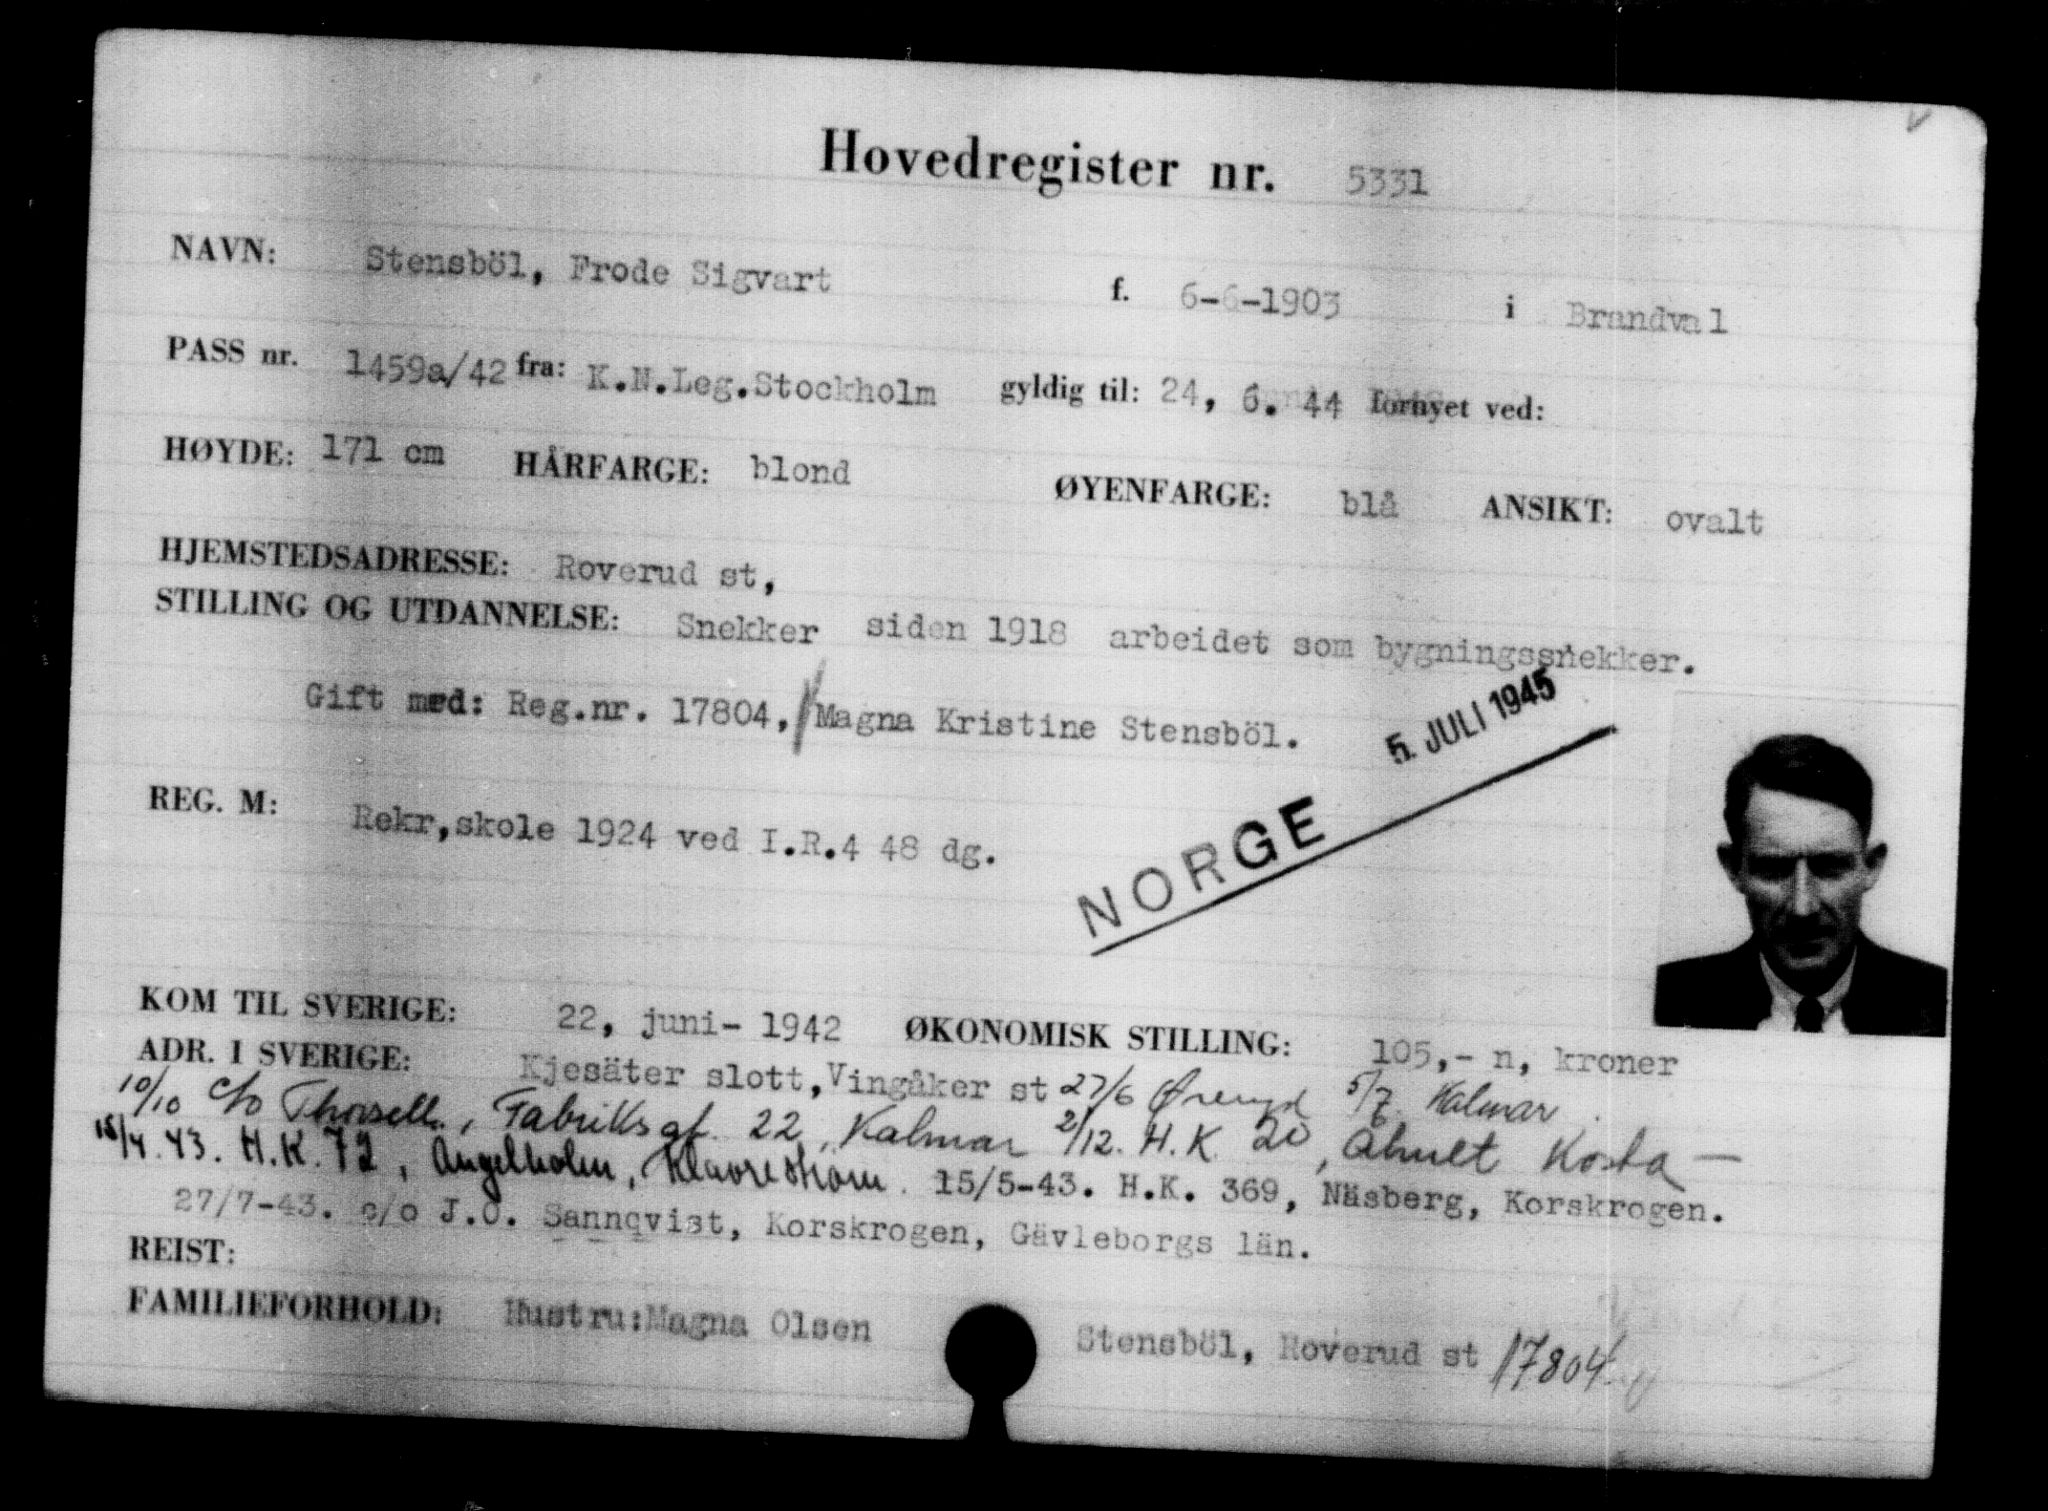 Hovedregister nr. 5331
NAVN: Stensböl, Frode Sigvart f. 6-6-1903 i Brandval
PASS nr. 1459a/42 fra: K.N.Leg.Stockholm gyldig til: 24, 6. 44 fornyet ved:
HØYDE: 171 cm HÅRFARGE: blond ØYENFARGE: blå ANSIKT: ovalt
HJEMSTEDSADRESSE: Roverud st,
STILLING OG UTDANNELSE: Snekker siden 1918 arbeidet som bygningssnekker.
Gift med: Reg.nr. 17804, Magna Kristine Stensböl.
5. JULI 1945
NORGE
REG. M: Rekr,skole 1924 ved I.R.4 48 dg.
KOM TIL SVERIGE: 22, juni- 1942 ØKONOMISK STILLING: 105,- n, kroner
ADR. I SVERIGE: Kjesäter slott, Vingåker st 27/6 5/7 Kalmar.
10/10 c/o Thorsell, Fabriksgt. 22, Kalmar 2/12. H.K. 20, Kosta —
15/4.43. H.K. 72, Ängelholm, 15/5-43. H.K. 369, Näsberg, Korskrogen.
27/7-43. c/o J.O. Sannqvist, Korskrogen, Gävleborgs län.
REIST:
FAMILIEFORHOLD: Hustru:Magna Olsen Stensböl, Roverud st 17804